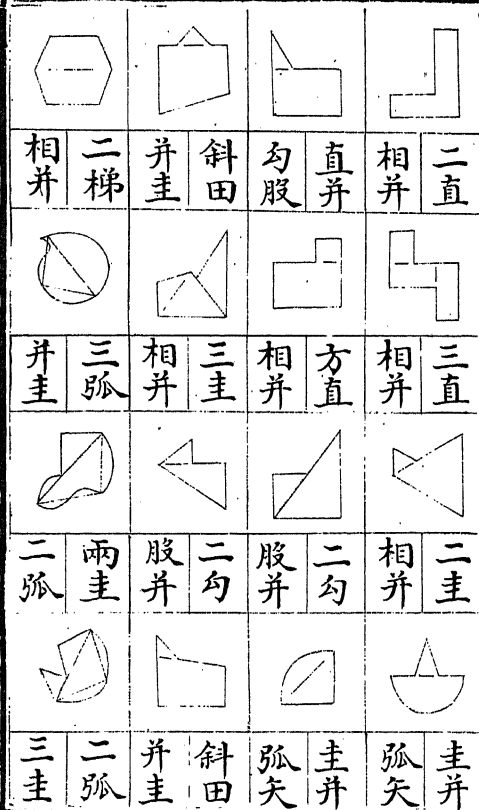 二直相并
直并勾股
斜田并圭
二梯相并
三直相并
方直相并
三圭相并
三弧并圭
二圭相并
二勾股并
二勾股并
兩圭二弧
圭并弧矢
圭并弧矢
斜田并圭
二弧三圭